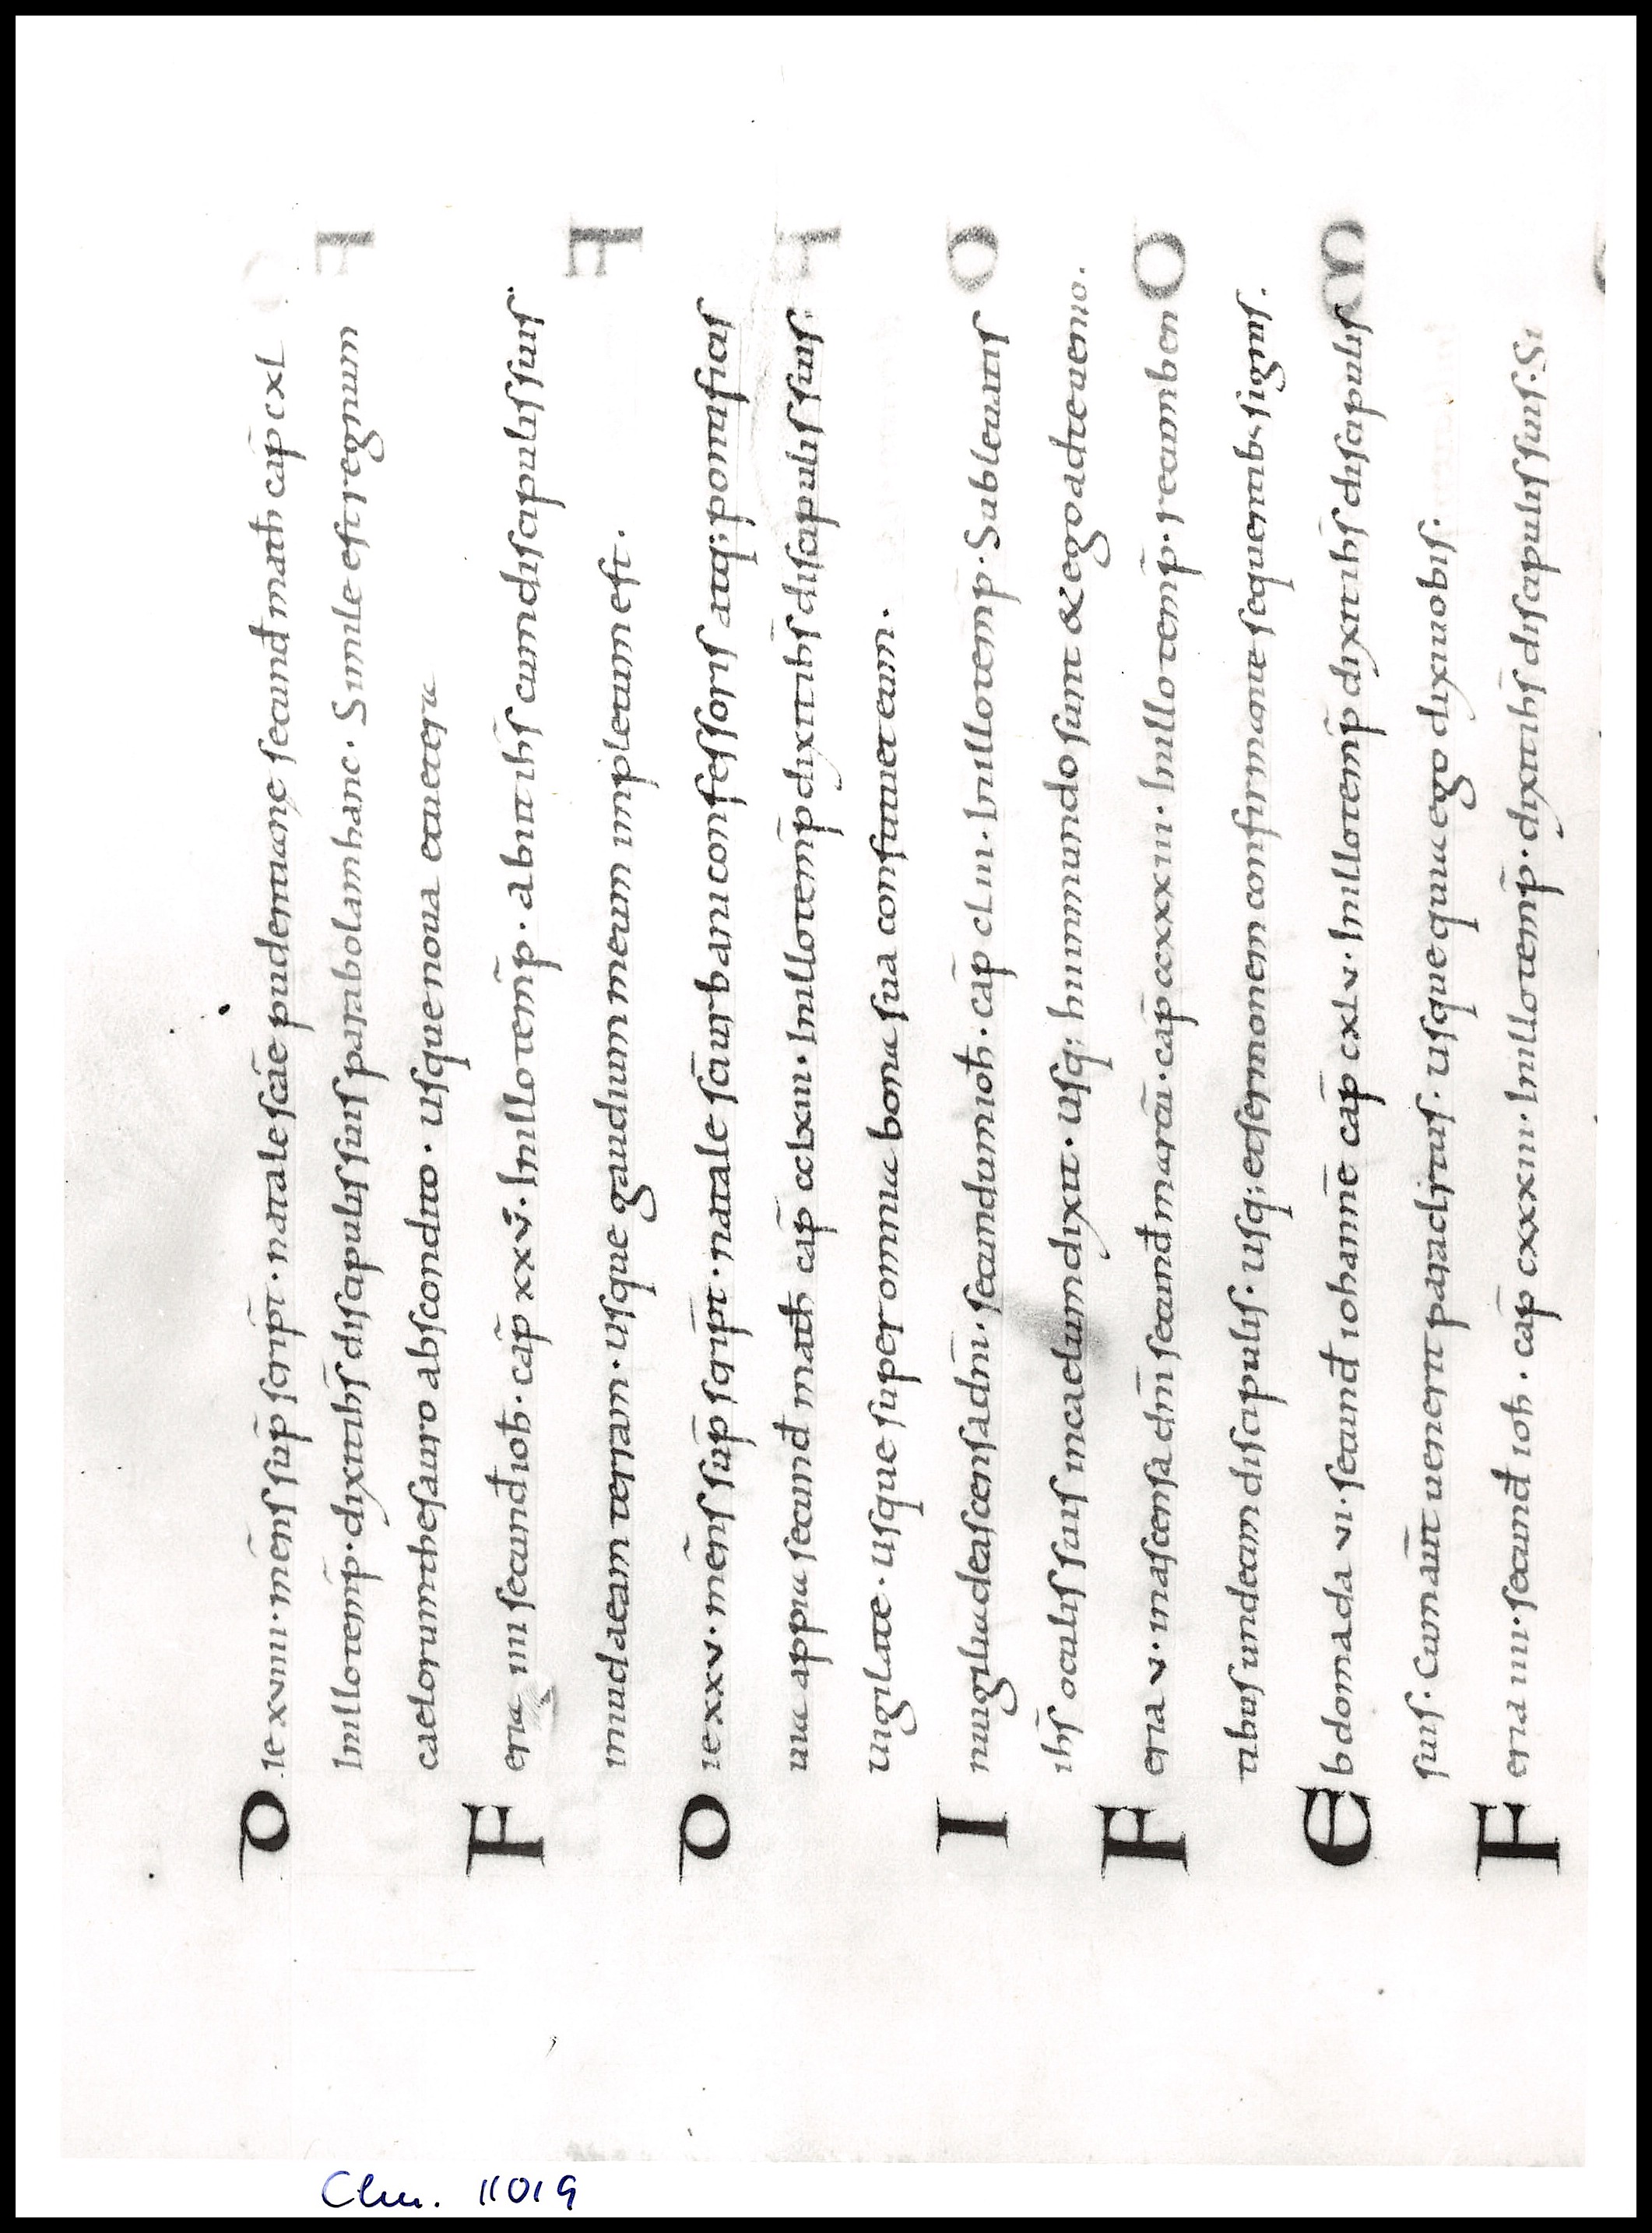 Die xviiii · mens̄ sup̄ script̄ · natale scāe pudentiane secund̄ matth̄ cap̄ cxl
In illo temp̄ · dixit ih̄s discipulis suis parabolam hanc · Simile est regnum
caelorum thesauro abscondito · usque noua et uetera
Feria iiii secund̄ ioh̄ · cap̄ xxv · In illo temp̄ · abiit ih̄s cum discipulis suis
in iudaeam terram · usque gaudium meum impletum est .
Die xxv · mens̄ sup̄ script̄ · natale sc̄i urbani confessoris atq; pontificis
uia appia secund̄ matth̄ cap̄ cclxiii · In illo temp̄ dixit ih̄s discipulis suis
uigilate · usque super omnia bona sua constituet eum .
In uigilia de ascensa dn̄i · secundum ioh̄ · cap̄ cliii · In illo temp̄ · Subleuatis
ih̄s oculis suis in caelum dixit · usq; hii in mundo sunt & ego ad te uenio .
Feria v · in ascensa dn̄i secund̄ marcū · cap̄ ccxxxiii · In illo temp̄ · recumben
tibus undecim discipulis · usq; et sermonem confirmante sequentib; signis .
Ebdomada vi · secund̄ iohannē cap̄ cxlv · In illo temp̄ dixit ih̄s discipulis
suis · Cum aūt uenerit paraclitus · usque quia ego dixi uobis .
Feria iiii · secund̄ ioh̄ · cap̄ cxxxiii · In illo temp̄ · dixit ih̄s discipulis suis · Si
Clm. 11019